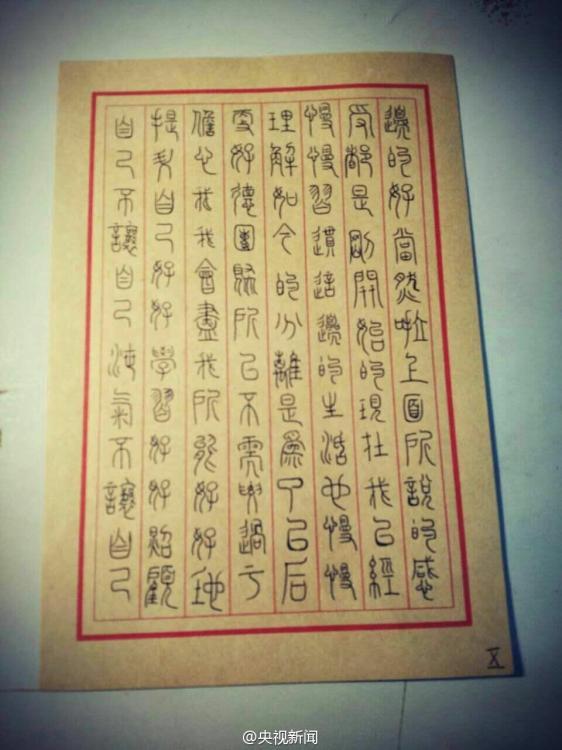 邊的好當然啦上面所說的感
受都是剛開始的現在我已經
慢慢習慣這邊的生活也慢慢
理解如今的分離是為了以后
更好德團聚所以不需要過于
擔心我我會盡我所能好好地
提契自己好好學習好好照顧
自己不讓自己泄氣不讓自己
X
@央视新闻